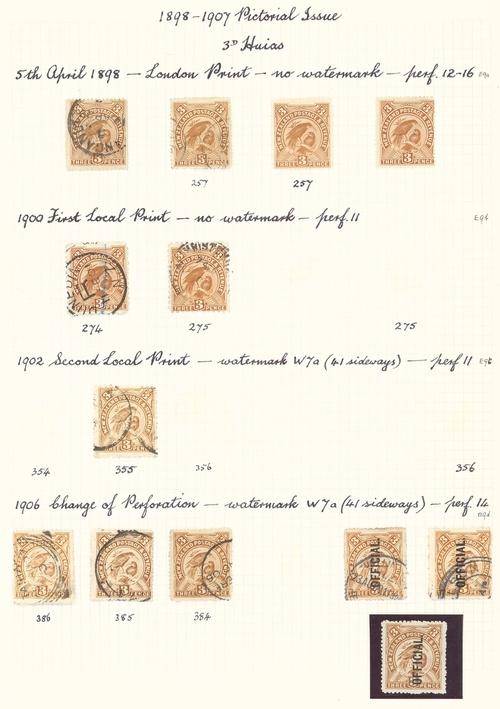 1898-1907 Pictorial Issue
3D Huias
5th April 1898 — London Print — no watermark — perf. 12-16
THREE PENCE
THREE PENCE
THREE PENCE
THREE PENCE
257
257
1900 First Local Print — no watermark — perf. 11
THREE PENCE
274
275
275
1902 Second Local Print — watermark W7a (41 sideways) — perf 11
THREE PENCE
354
355
356
356
1906 Change of Perforation — watermark W7a (41 sideways) — perf. 14
OFFICIAL
OFFICIAL
386
385
384
OFFICIAL
THREE PENCE